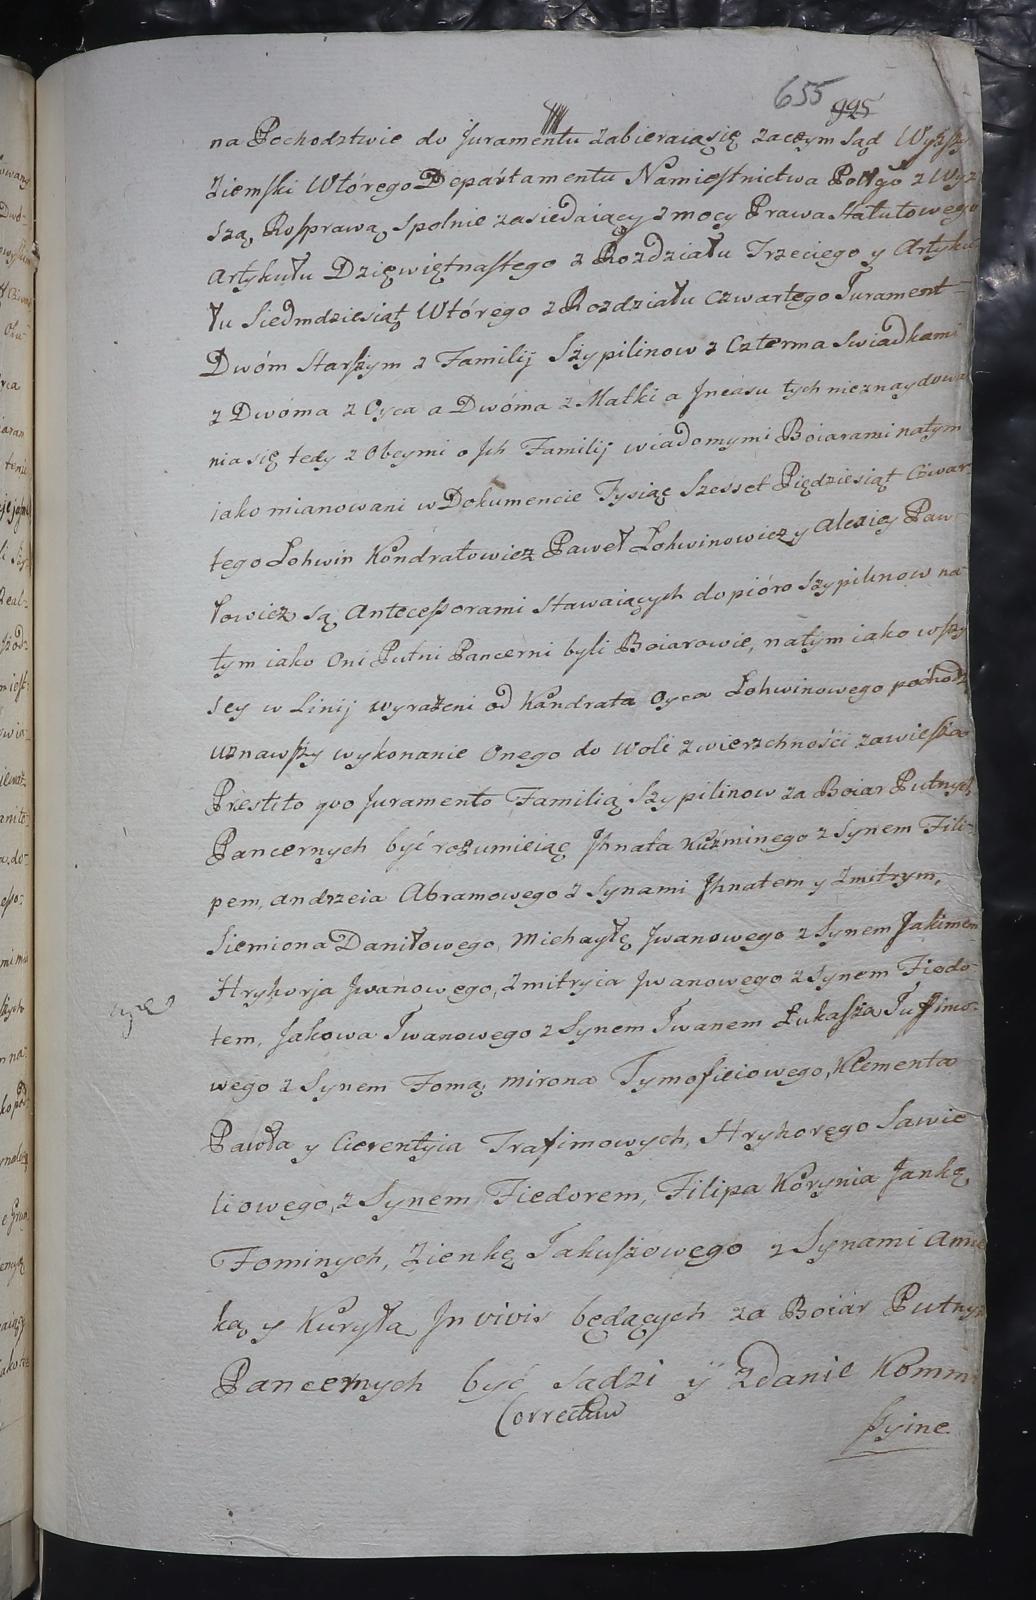 655 995
na Pochodztwie do Juramentu zabieraią się zaczym Sąd Wyższy
Ziemski Wtórego Departamentu Namiestnictwa Połłgo z Wyż
szą Rosprawą Spolnie zasiedaiący z mocy Prawa Statutowego
Artykułu Dziewiętnastego z Rozdziału Trzeciego y Artyku
łu Siedmdziesiąt Wtórego z Rozdziału Czwartego Jurament
Dwóm Starszym z Familij Szypilinow z Czterma Swiadkami
z Dwóma z Oyca a Dwóma z Matki a Jncasu tych nieznaydowa
nia się tedy z Obcymi o Jch Familij wiadomymi Boiarami natym
iako mianowani w Dokumencie Tysiąc Szesset Piędziesiąt Czwar
tego Łohwin Kondratowicz Paweł Łohwinowicz y Alexiey Paw
łowicz są Antecessorami Stawaiących do pióro Szypilinow na
tym iako Oni Putni Pancerni byli Boiarowie, natym iako wszy
scy w Linij wyrażeni od Kandrata Oyca Łohwinowego pochodz
uznawszy wykonanie Onego do Woli zwierzchności zawiesza
Prestito quo Juramento Familią Szypilinow za Boiar Putnych
Pancernych być rozumieiąc Jhnata Kuźminego z Synem Fili-
pem, Andrzeia Abramowego z Synami Jhnatem y Zmitrym,
Siemiona Daniłowego, Michayłę Jwanowego z Synem Jakimem
Hryhorja Jwanowego, Zmitryia Jwanowego z Synem Fiedo-
tem, Jakowa Jwanowego z Synem Jwanem Łukasza Jufimo-
wego z Synem Fomą, Mirona Tymofieiowego, Klementa
Pawła y Cierentyia Trafimowych, Hryhorego Sawie
liowego, z Synem Fiedorem, Filipa Korynia Jankę
Fominych, Zienkę Jakuszowego z Synami
ką y Kuryła Jn vivis będących za Boiar Putnych
Pancernych być sądzi ÿ Zdanie Kommi
Correctum
ssyine